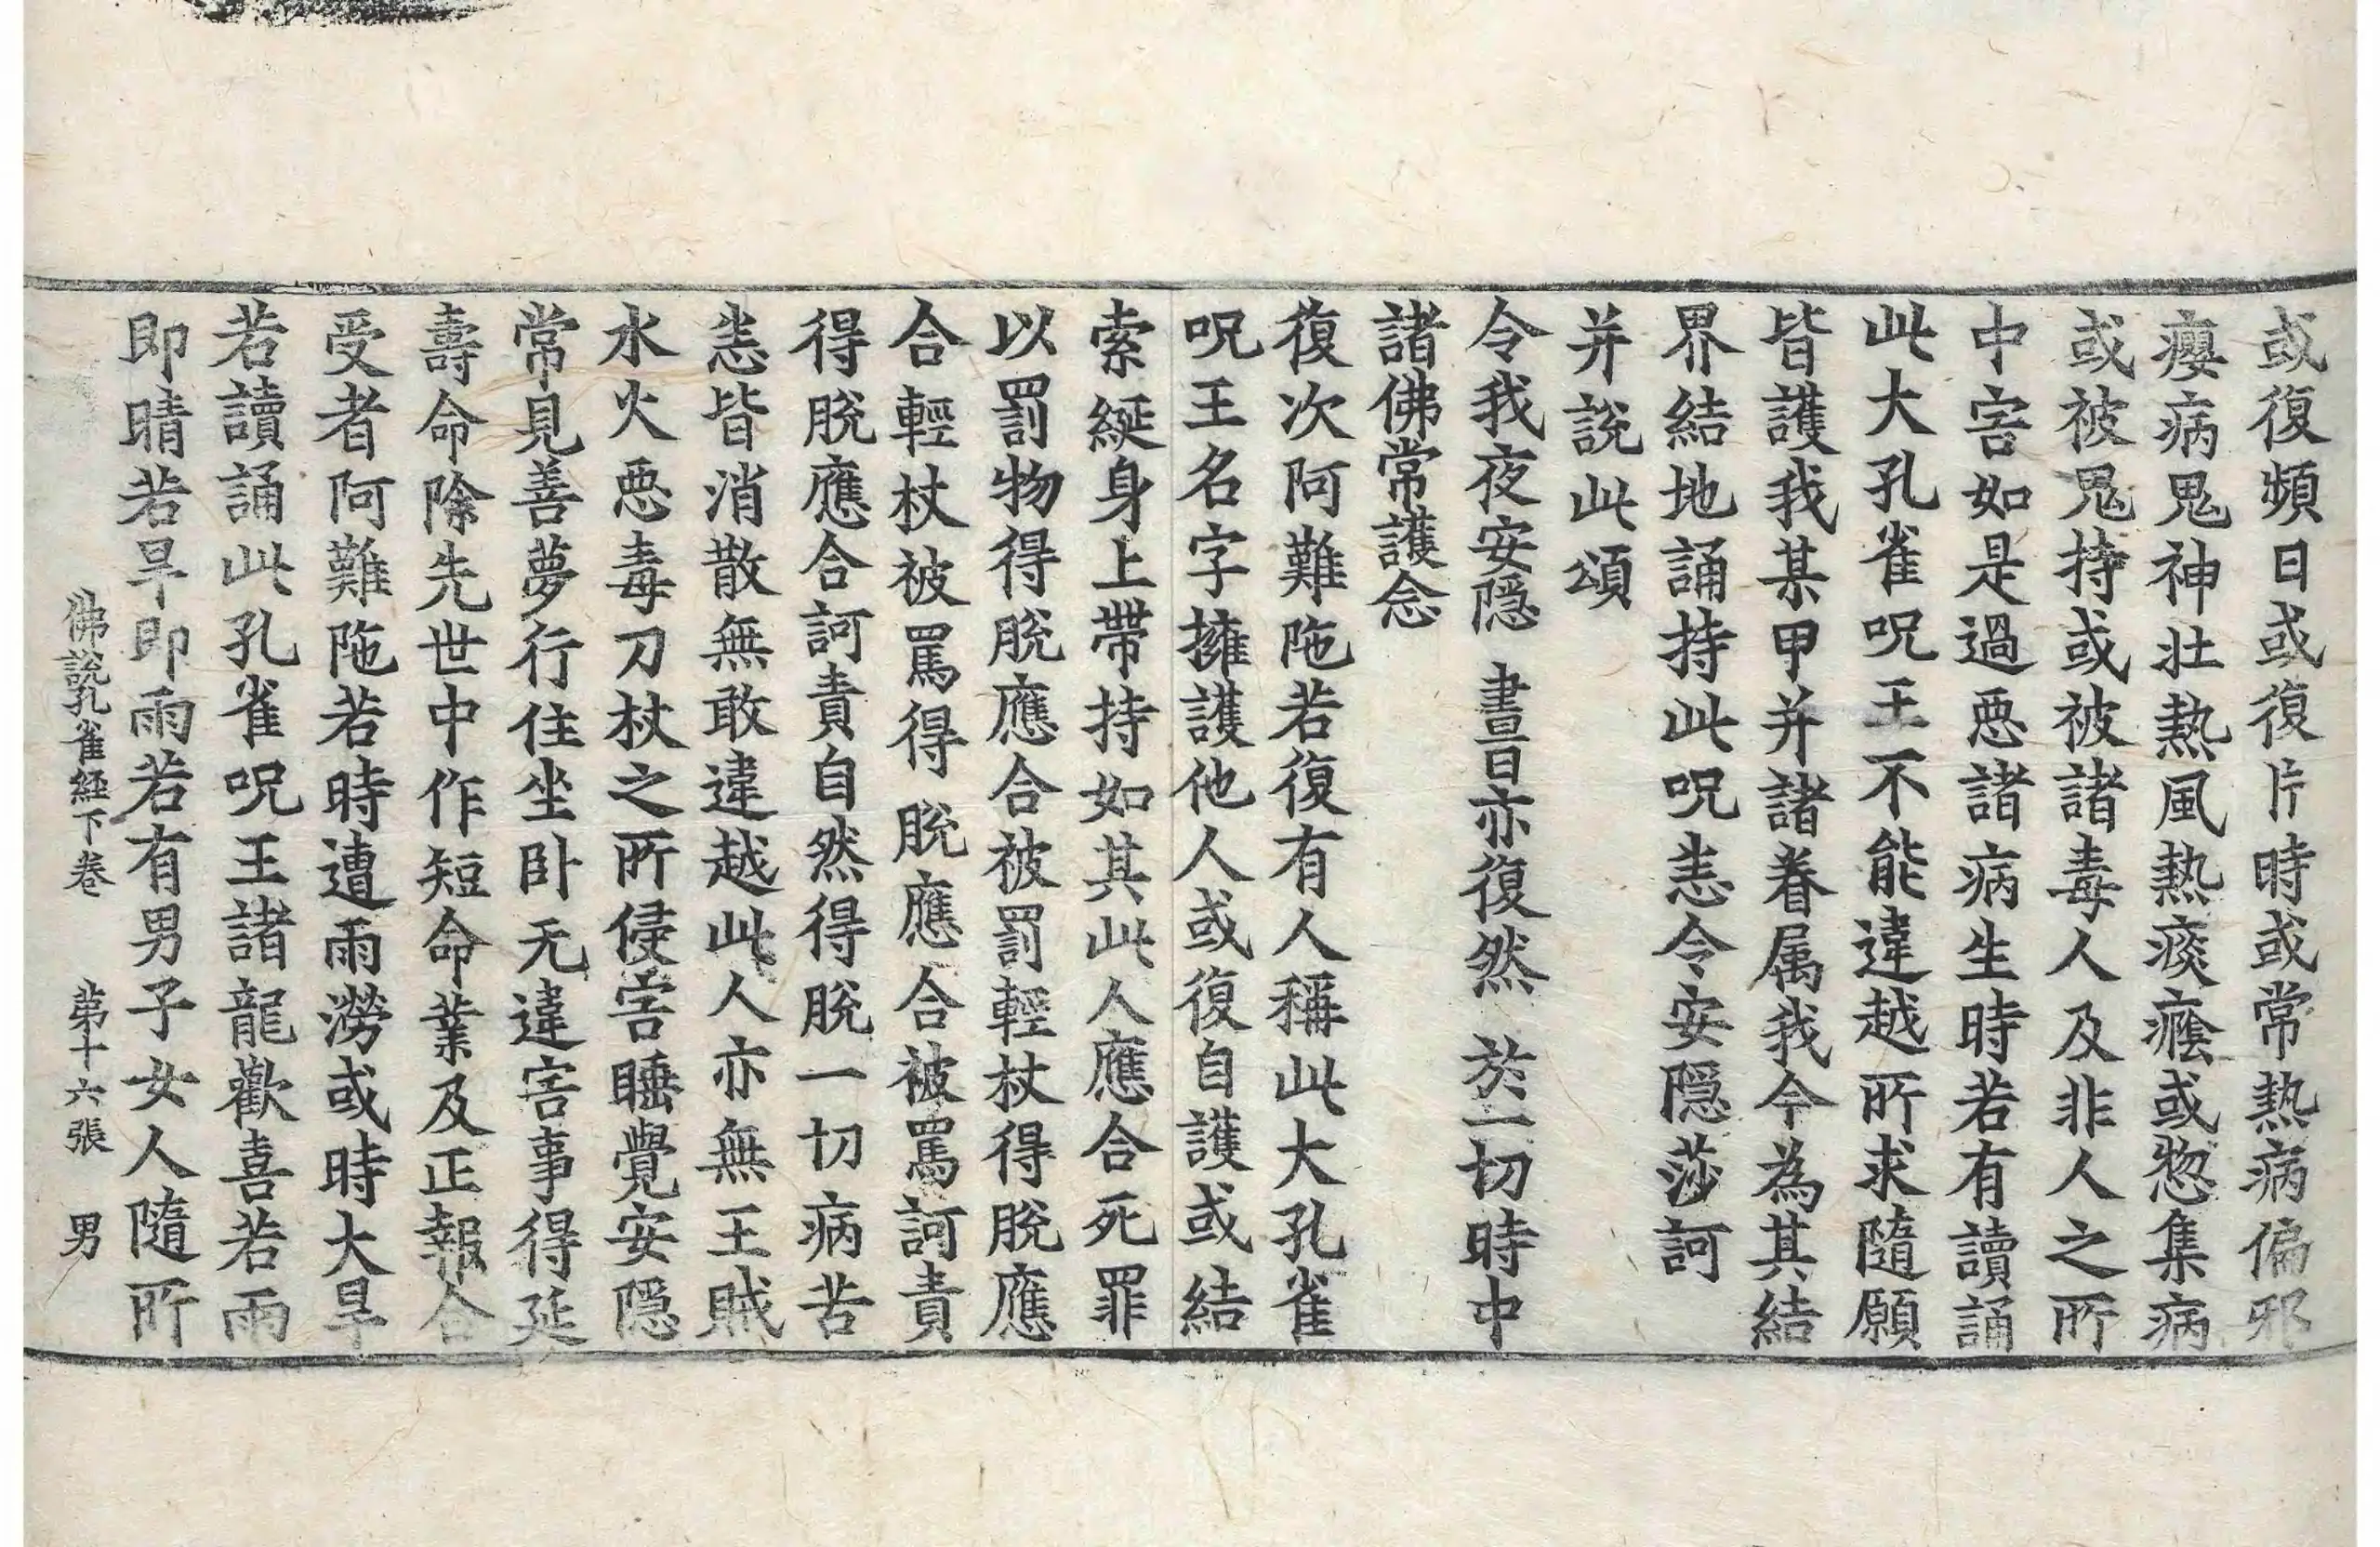 或復頻日或復片時或常熱病偏邪
癭病鬼神壯熱風熱痰癊或惣集病
或被鬼持或被諸毒人及非人之所
中害如是過惡諸病生時若有讀誦
此大孔雀呪王不能違越所求隨願
皆護我某甲并諸眷属我今為其結
界結地誦持此呪恚令安隱莎訶
并說此頌
令我夜安隱　晝日亦復然　於一切時中
諸佛常護念
復次阿難陁若復有人稱此大孔雀
呪王名字擁護他人或復自護或結
索綖身上帶持如其此人應合死罪
以罰物得脫應合被罰輕杖得脫應
合輕杖被罵得脫應合被罵訶責
得脫應合訶責自然得脫一切病苦
恚皆消散無敢違越此人亦無王賊
水火惡毒刀杖之所侵害睡覺安隱
常見善夢行住坐卧无違害事得延
壽命除先世中作短命業及正報合
受者阿難陁若時遭雨澇或時大旱
若讀誦此孔雀呪王諸龍歡喜若雨
即晴若旱即雨若有男子女人隨所
佛說孔雀經下卷　第十六張　男